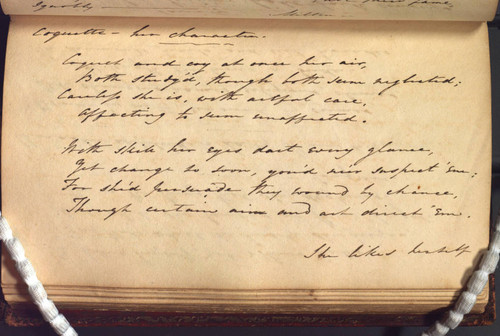 Ignobly
Milton
Coquette - her character.
Coquet and coy at once her air,
Both study'd, though both seem neglected;
Careless she is, with artful care,
Affecting to seem unaffected.
With skill her eyes dart every glance,
Yet change so soon, you'd ne'er suspect 'em;
For she'd persuade they wound by chance,
Though certain aim and art direct 'em.
She likes herself